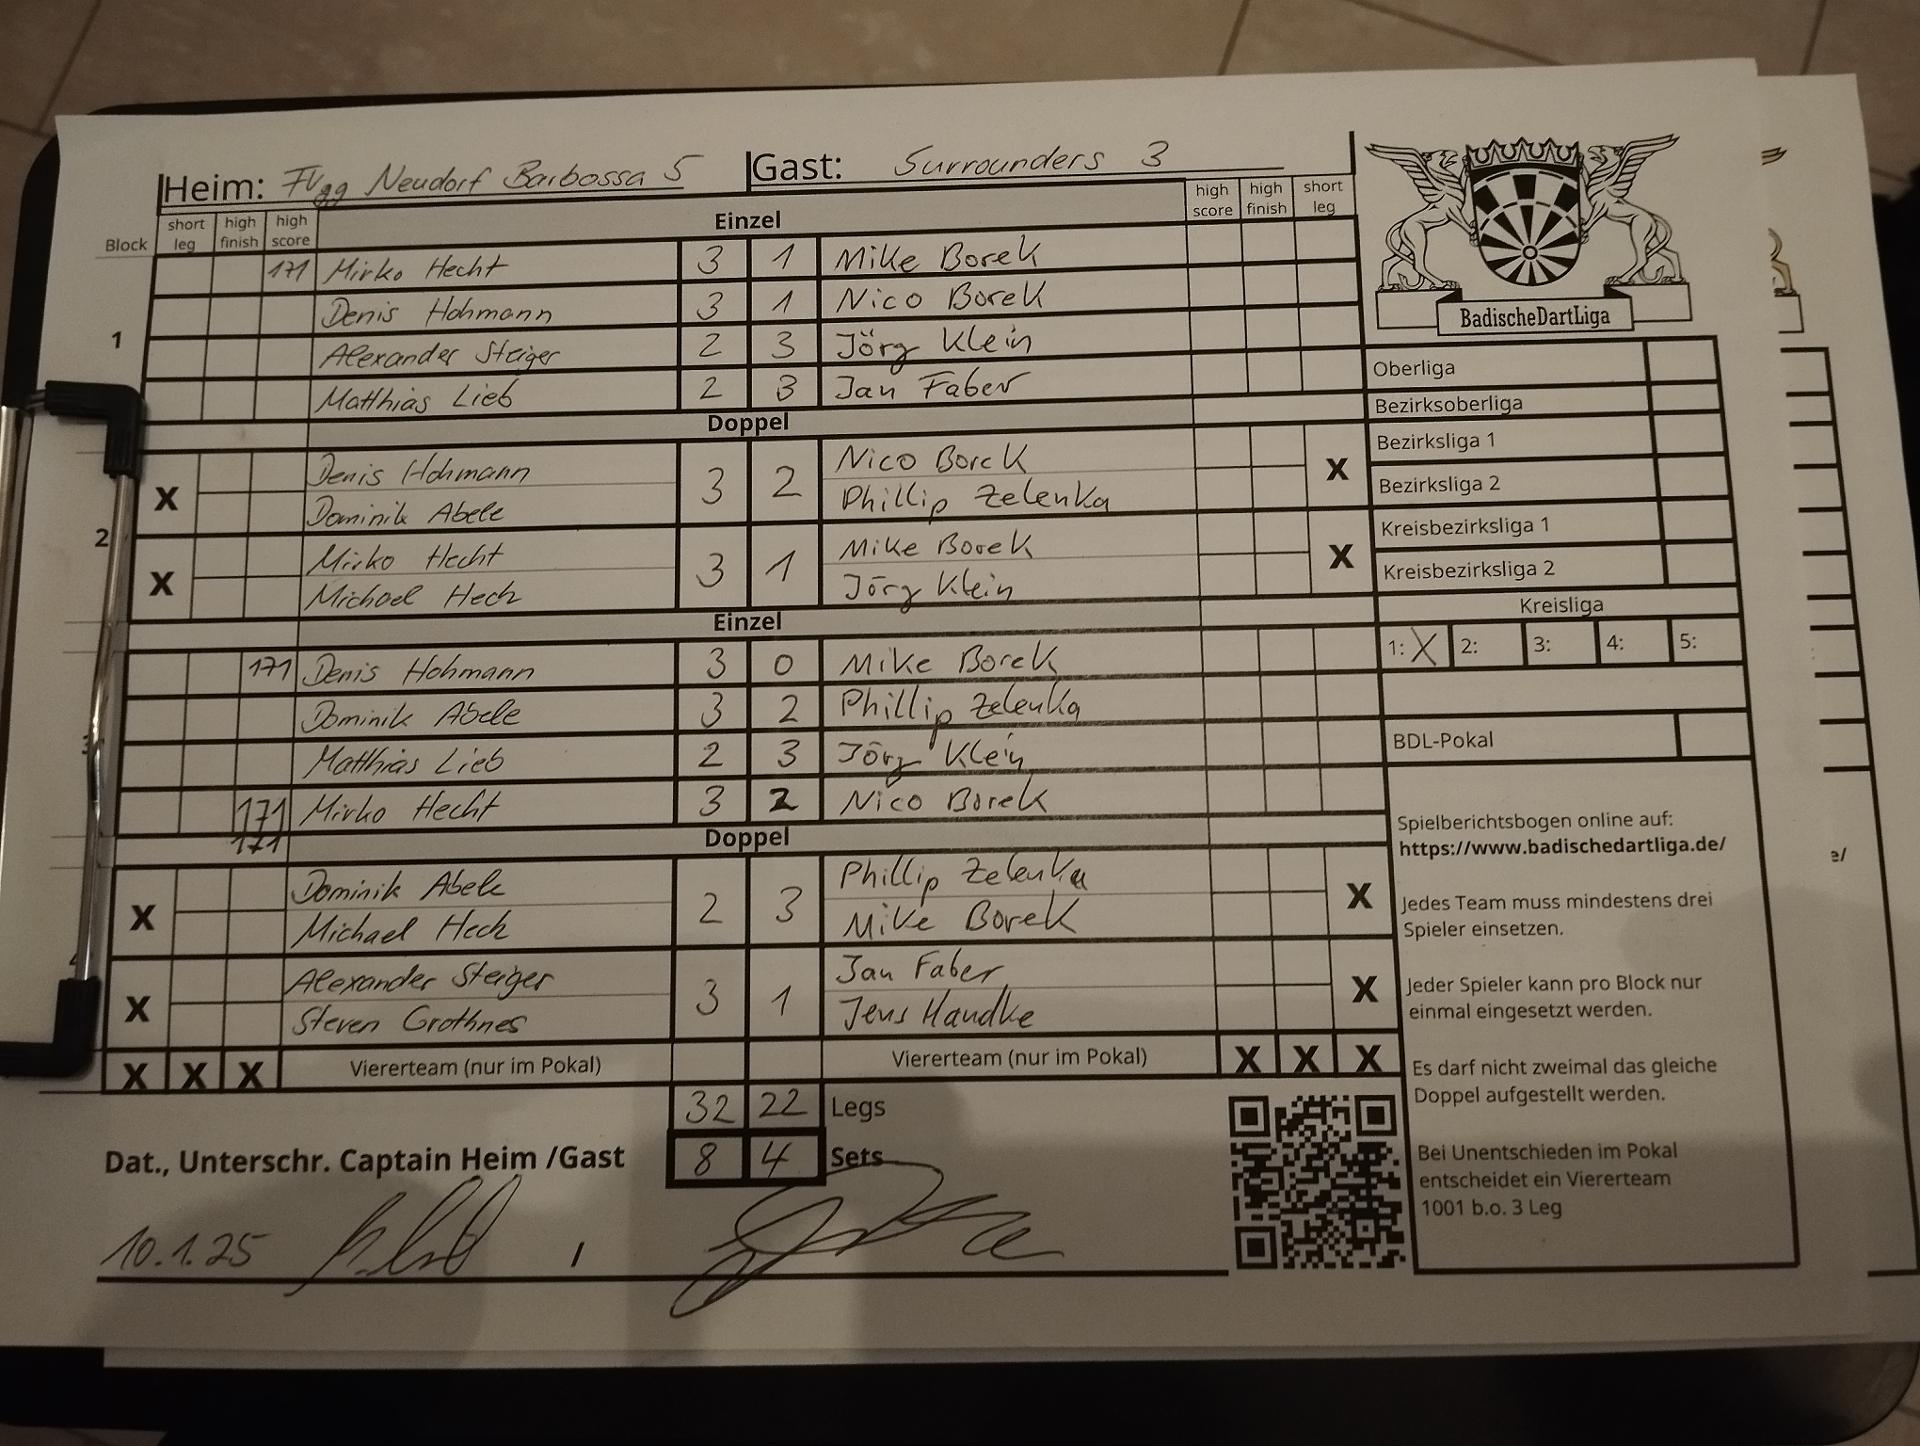 Heim: FVgg Neudorf Barbossa 5 Gast: Surrounders 3
Block short leg high finish high score Einzel high score high finish short leg
171 Mirko Hecht 3 1 Mike Borek
Denis Hohmann 3 1 Nico Borek
1
Alexander Steiger 2 3 Jörg Klein
Matthias Lieb 2 3 Jan Faber
Doppel
X Denis Hohmann 3 2 Nico Borek X
Dominik Abele Phillip Zelenka
2
X Mirko Hecht 3 1 Mike Borek X
Michael Hech Jörg Klein
Einzel
171 Denis Hohmann 3 0 Mike Borek
Dominik Abele 3 2 Phillip Zelenka
Matthias Lieb 2 3 Jörg Klein
171 Mirko Hecht 3 2 Nico Borek
171 Doppel
X Dominik Abele 2 3 Phillip Zelenka X
Michael Hech Mike Borek
X Alexander Steiger 3 1 Jan Faber X
Steven Grothnes Jens Handke
X X X Viererteam (nur im Pokal) Viererteam (nur im Pokal) X X X
32 22 Legs
8 4 Sets
Dat., Unterschr. Captain Heim /Gast
10.1.25 /
BadischeDartLiga
Oberliga
Bezirksoberliga
Bezirksliga 1
Bezirksliga 2
Kreisbezirksliga 1
Kreisbezirksliga 2
Kreisliga
1: X 2: 3: 4: 5:
BDL-Pokal
Spielberichtsbogen online auf:
https://www.badischedartliga.de/
Jedes Team muss mindestens drei
Spieler einsetzen.
Jeder Spieler kann pro Block nur
einmal eingesetzt werden.
Es darf nicht zweimal das gleiche
Doppel aufgestellt werden.
Bei Unentschieden im Pokal
entscheidet ein Viererteam
1001 b.o. 3 Leg
e/